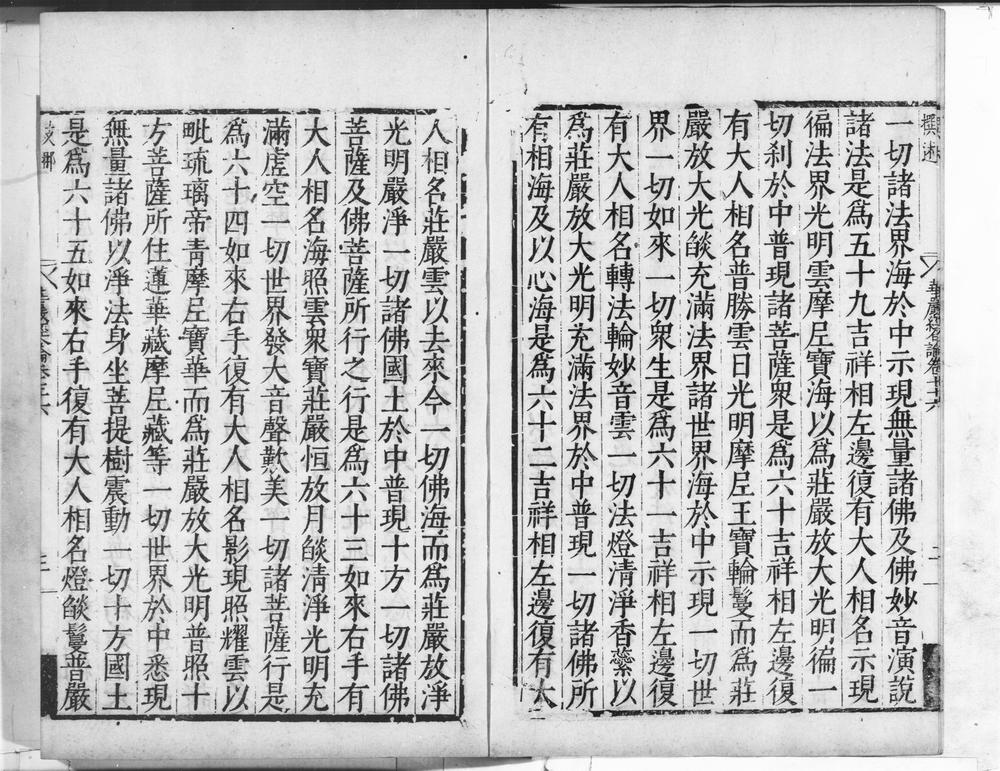 撰述
華嚴經合論卷
一切諸法界海於中示現無量諸佛及佛妙音演說
諸法是爲五十九吉祥相左邊復有大人相名示現
徧法界光明雲摩尼寶海以爲莊嚴放大光明徧一
切刹於中普現諸菩薩衆是爲六十吉祥相左邊復
有大人相名普勝雲日光明摩尼王寶輪鬘而爲莊
嚴放大光燄充滿法界諸世界海於中示現一切世
界一切如來一切衆生是爲六十一吉祥相左邊復
有大人相名轉法輪妙音雲一切法燈清淨香蘂以
爲莊嚴放大光明充滿法界於中普現一切諸佛所
有相海及以心海是爲六十二吉祥相左邊復有大
人相名莊嚴雲以去來今一切佛海而爲莊嚴放淨
光明嚴淨一切諸佛國土於中普現十方一切諸佛
菩薩及佛菩薩所行之行是爲六十三如來右手有
大人相名海照雲衆寶莊嚴恒放月燄清淨光明充
滿虛空一切世界發大音聲歎美一切諸菩薩行是
爲六十四如來右手復有大人相名影現照耀雲以
毗琉璃帝靑摩尼寶華而爲莊嚴放大光明普照十
方菩薩所住蓮華藏摩尼藏等一切世界於中悉現
無量諸佛以淨法身坐菩提樹震動一切十方國土
是爲六十五如來右手復有大人相名燈燄鬘普嚴